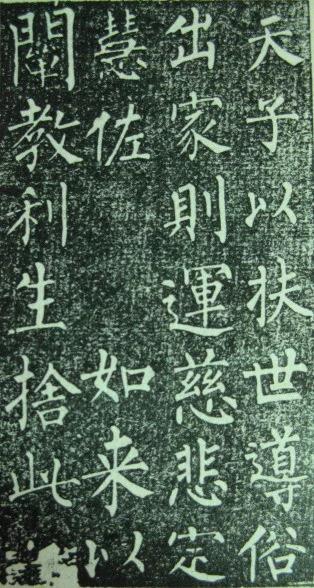 天子以扶世導俗
出家則運慈悲定
慧佐 如来以
闡教利生捨此